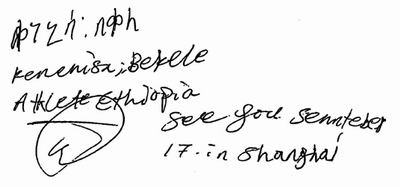 ቀነኒሳ፡ በቀለ
kenenisa; Bekele
Athlete Ethiopia
see you
17. in Shanghai